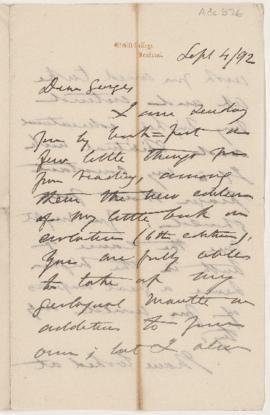 Acc 576
McGill College
Montreal
Sept 4/92
Dear George
I am sending
you by book-post a
few little things for
your reading, among
them the new edition
of my little book on
evolution (6th edition).
You are fully able
to take up my
geological mantle in
addition to your
own; but I also